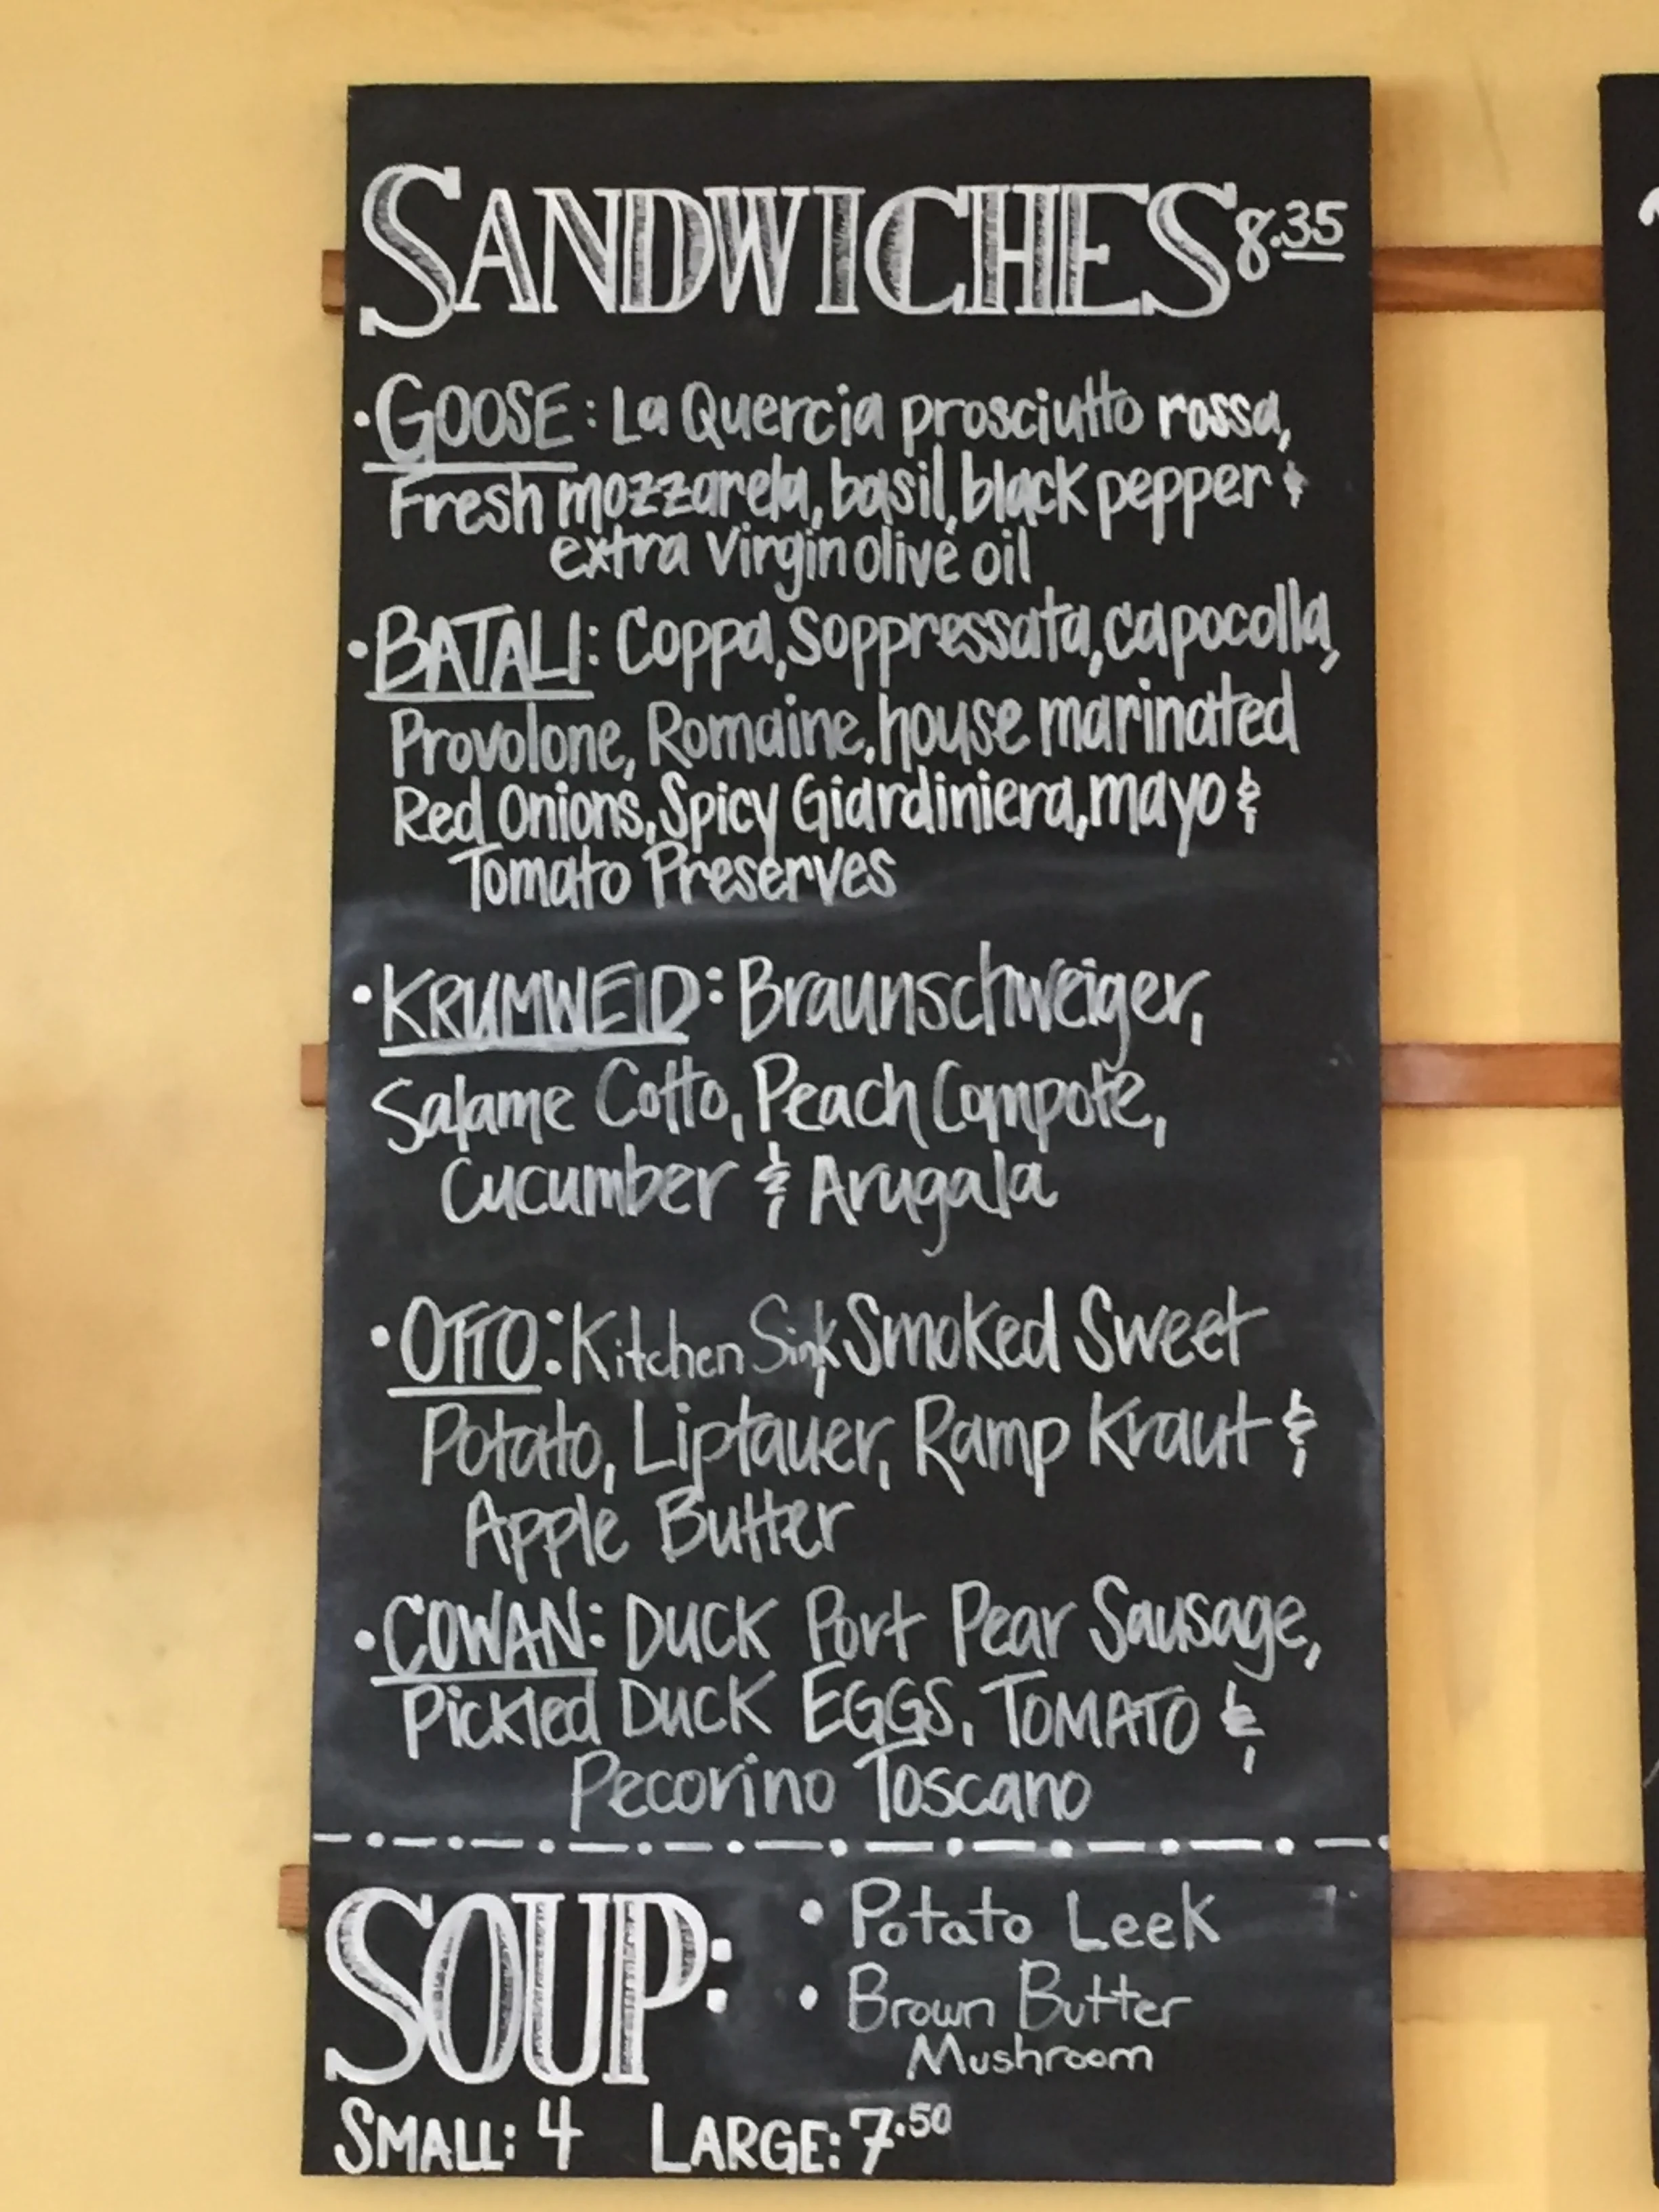 SANDWICHES 8.35
• GOOSE: La Quercia prosciutto rossa,
Fresh mozzarela, basil, black pepper &
extra Virgin olive oil
• BATALI: Coppa, Soppressata, capocolla,
Provolone, Romaine, house marinated
Red Onions, Spicy Giardiniera, mayo &
Tomato Preserves
• KRUMWEID: Braunschweiger,
Salame Cotto, Peach Compote,
Cucumber & Arugala
• OTTO: Kitchen Sink Smoked Sweet
Potato, Liptauer, Ramp Kraut &
Apple Butter
• COWAN: DUCK Port Pear Sausage,
Pickled DUCK EGGS, TOMATO &
Pecorino Toscano
SOUP: • Potato Leek
• Brown Butter
Mushroom
SMALL: 4 LARGE: 7.50